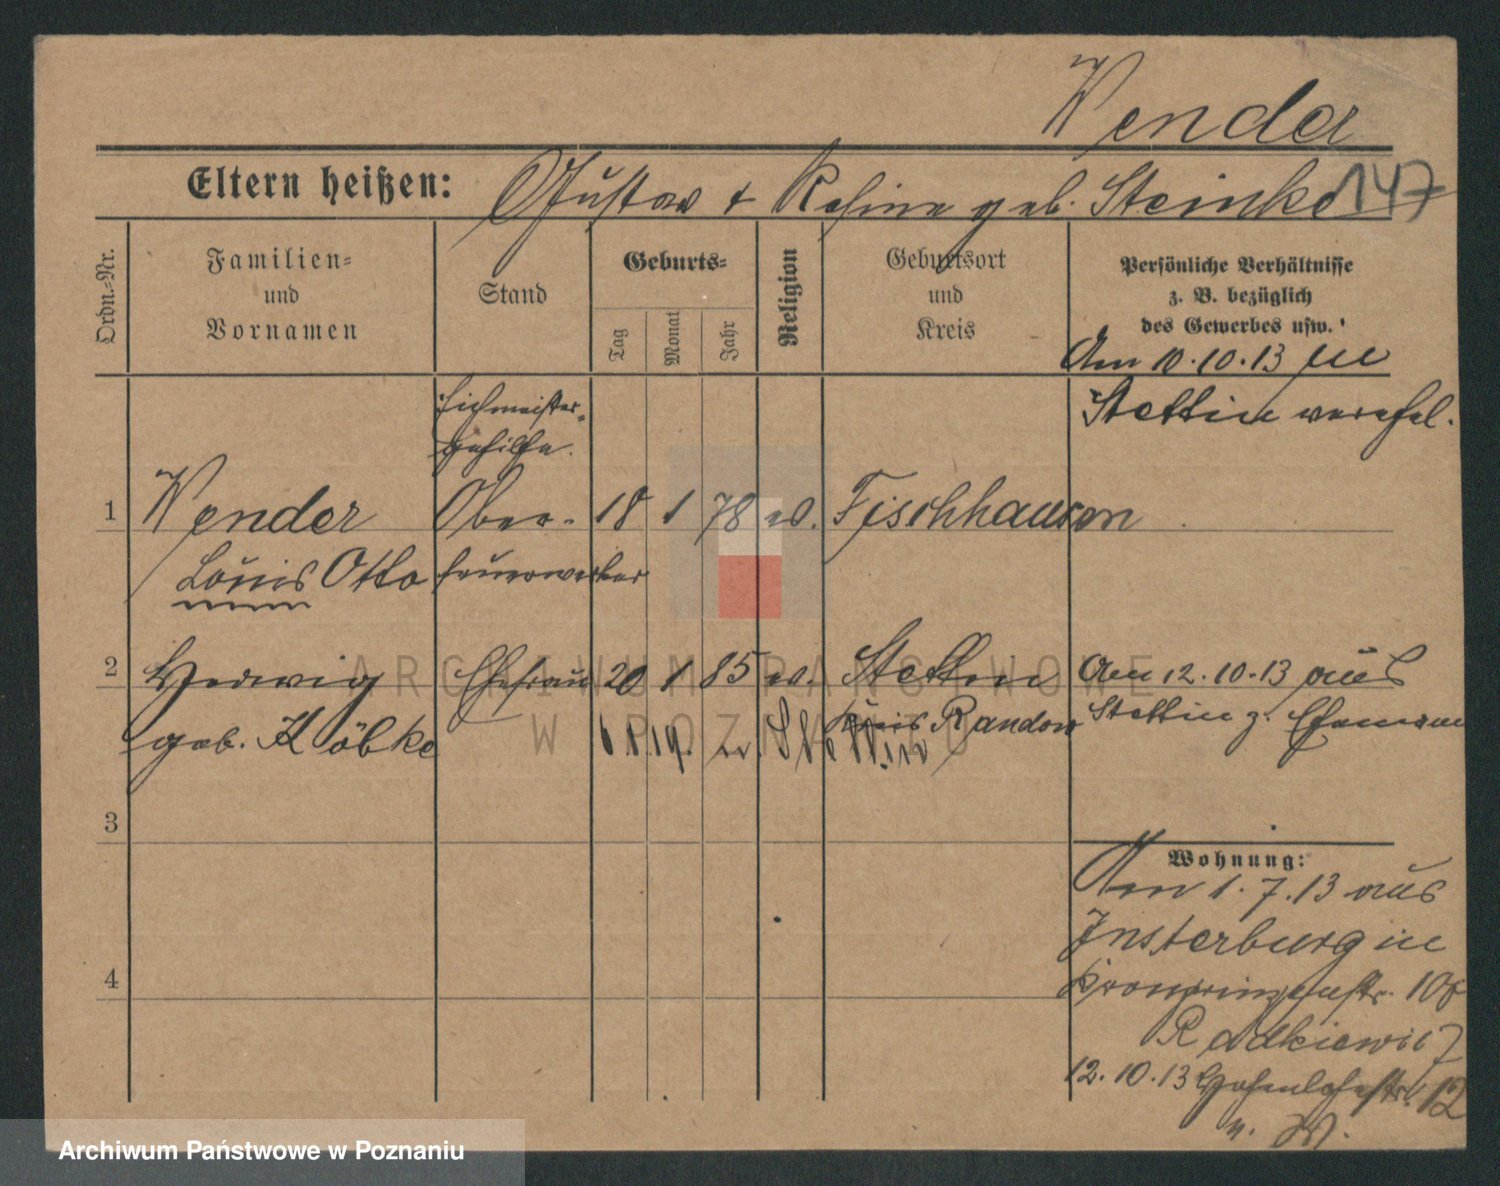 Wender
Eltern heißen: Gustav & Rosine geb. Steinke 147
Ordn.-Nr.
Familien-
und
Vornamen
Stand
Geburts-
Tag
Monat
Jahr
Religion
Geburtsort
und
Kreis
Persönliche Verhältnisse
z. B. bezüglich
des Gewerbes usw.
Am 10.10.13 in
Stettin verehel.
Eichmeister-
gehilfe.
1 Wender Ober- 18 1 78 ev. Fischhausen
Louis Otto feuerwerker
2 Hedwig Ehefrau 20 1 85 ev. Stettin Am 12.10.13 aus
geb. Köbke Kreis Randow Stettin z. Ehemann
3
Wohnung:
Am 1.7.13 aus
Insterburg in
4 Kronprinzenstr.
Radkiewicz
12.10.13 Hohenlohestr. 12
ARCHIWUM PAŃSTWOWE
W POZNANIU
Archiwum Państwowe w Poznaniu